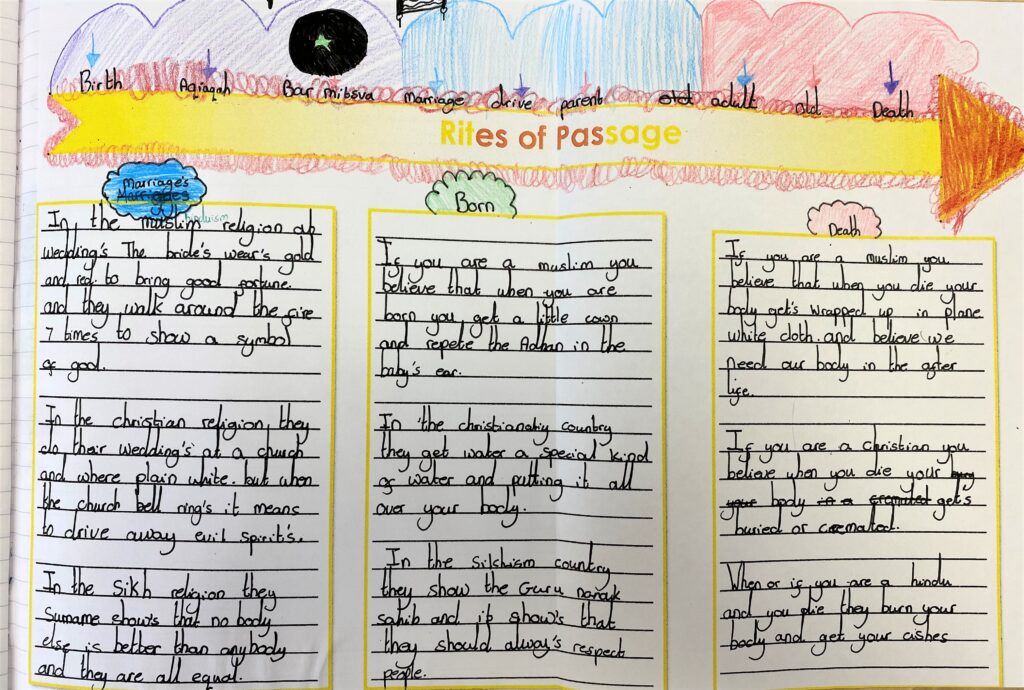 Birth Aqiaqah Bar mitsva marriage drive parent old adult old Death
Rites of Passage
Marriage's
Marrigdes
In the muslim hinduism religion at
wedding's The bride's wear's gold
and red to bring good fortune.
and they walk around the fire
7 times to show a symbol
of good.
In the christian religion they
do their wedding's at a church
and where plain white. but when
the church bell ring's it means
to drive away evil spirit's.
In the Sikh religion they
Surname show's that no body
else is better than anybody
and they are all equal.
Born
If you are a muslim you
believe that when you are
born you get a little cown
and repete the Adhan in the
baby's ear.
In the christianatiy country
they get water a special kind
of water and putting it all
over your body.
In the Silchuism country
they show the Guru nanak
sahib and it show's that
they should alway's respect
people.
Death
If you are a muslim you
believe that when you die your
body get's wrapped up in plane
white cloth. and believe we
need our body in the after
life.
If you are a Christian you
believe when you die your
your body in a cremated get's
buried or cremated.
When or if you are a hindu
and you die they burn your
body and get your ashes